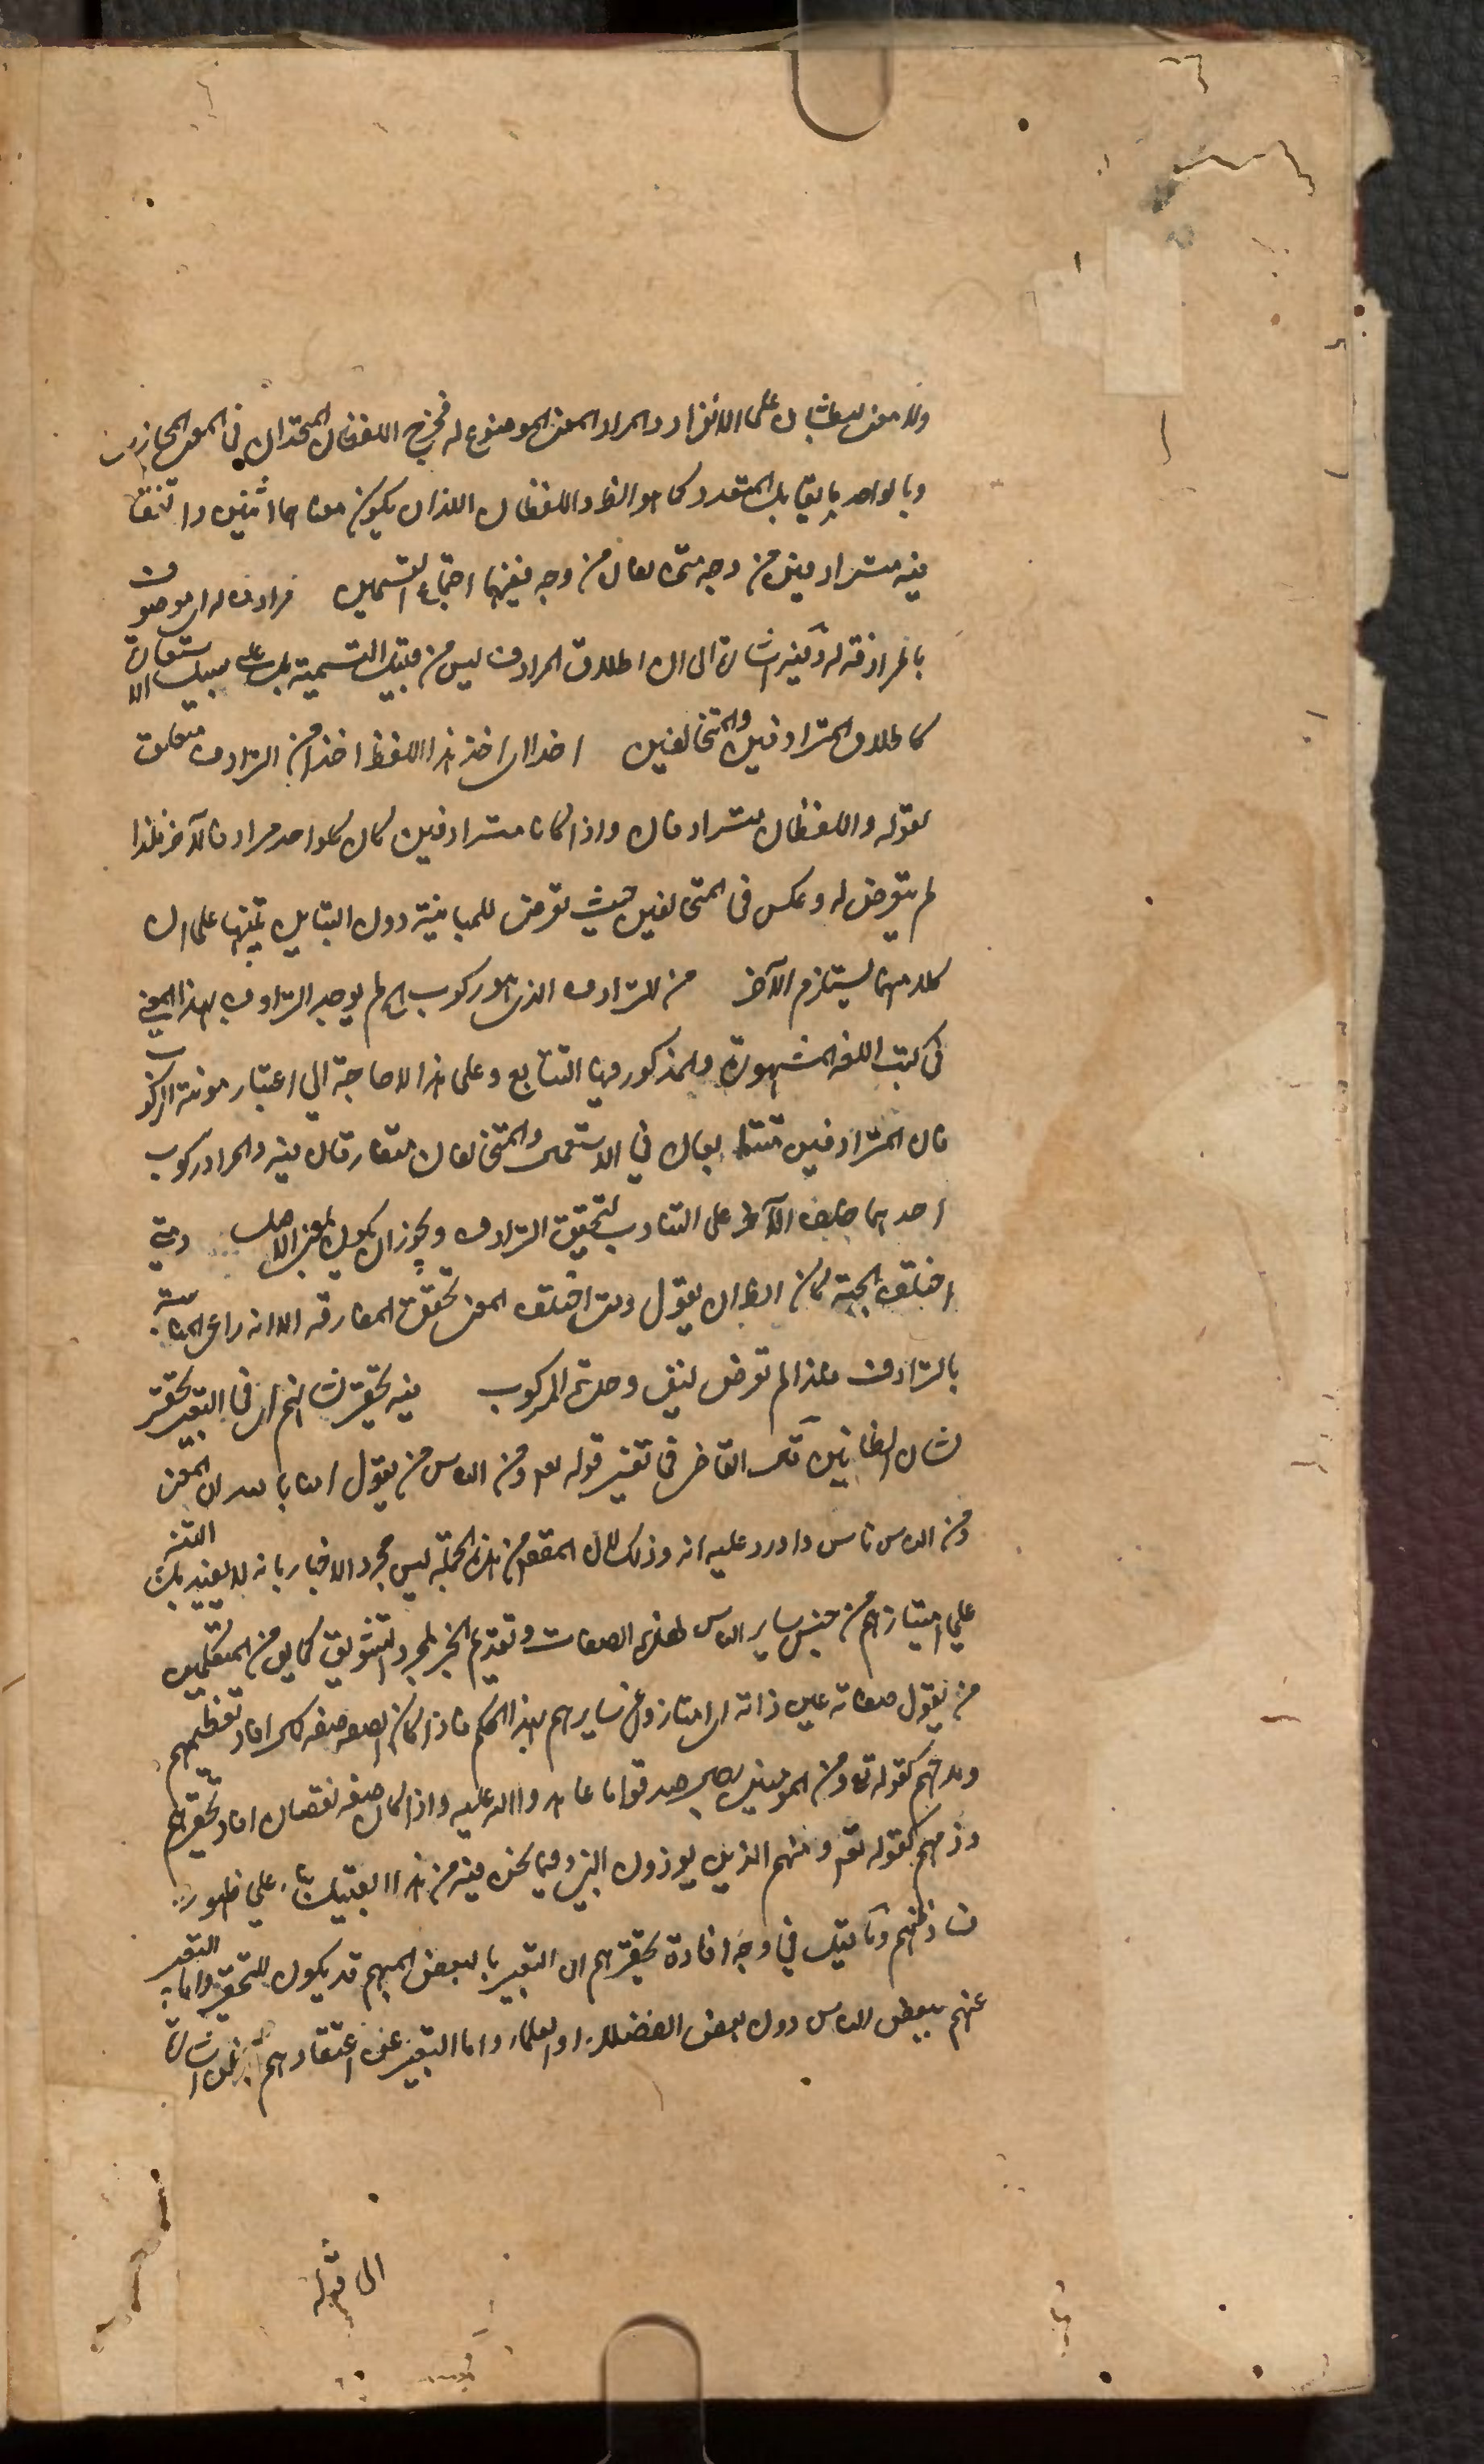 وللا معنى ليعاشان على الانفراد والمراد المعنى الموضوع له فخرج اللفظان المتحدان في المعنى المجازي
وبالواحد ما يقابل المتعدد كما هو الظ واللفظان اللذان يكون معناهما اثنين واتفقا
فيه مترادفين من وجه متخالفان من وجه ففيهما اجتماع القسمين مرادف له اي موصوف
بالمرادفة له وفيه اشارة الى ان اطلاق المرادف ليس من قبيل التسمية بل على سبيل الاستعارة
كاطلاق المترادفين والمتخالفين اخذا اي اخذ هذا اللفظ اخذا من الترادف متعلق
بقوله واللفظان مترادفان واذا كانا مترادفين كان كل واحد مرادفا للآخر فلذا
لم يتعرض له وعكس في المتخالفين حيث تعرض للمباينة دون التباين تنبيها على ان
كلا منهما يستلزم الآخر من الترادف الذي هو ركوب اي لم يوجد الترادف بهذا المعنى
في كتب اللغة المشهورة والمذكور فيها التتابع وعلى هذا لا حاجة الى اعتبار مونة الركوب
فان المترادفين متتابعان في الاستعمال والمتخالفان متفارقان فيه والمراد ركوب
احدهما خلف الآخر على التناوب لتحقيق الترادف ويجوز ان يكون بمعنى الاصل ومتى
اختلف الجهة كان الظ ان يقول ومتى اختلف المعنى تحقق المفارقة الا انه راعى المناسبة
بالترادف فلذا لم تعرض لنفي وحدة المركوب فيه تحقير شانهم اي في التعبير تحقير
شان الظانين قال القاضي في تفسير قوله تعالى ومن الناس من يقول امنا بالله ان المعنى
ومن الناس ناس واورد عليه انه وذلك لان المقصود من هذه الجملة ليس مجرد الاخبار بانه لا يفيد بل التنبيه
على امتيازهم من جنس ساير الناس بهذه الصفات وتقديم الخبر لمجرد التشويق كما يق من المتكلمين
من يقول صفاته عين ذاته اي امتازوا عن سايرهم بهذا الحكم فاذا كان الصفة صفة كمال افاد تعظيمهم
ومدحهم كقوله تعالى ومن المومنين رجال صدقوا ما عاهدوا الله عليه واذا كان صفة نقصان افاد تحقيرهم
وذمهم كقوله تعالى ومنهم الذين يوذون النبي وفيما نحن فيه من هذا القبيل بناء على ظهور
فساد ظنهم وما قيل في وجه افادة تحقيرهم ان التعبير بالبعض المبهم قد يكون للتحقير واما التعبير
عنهم ببعض الناس دون بعض الفضلاء او العلماء واما التعبير عن اعتقادهم بالظن اشارة
الى قوله